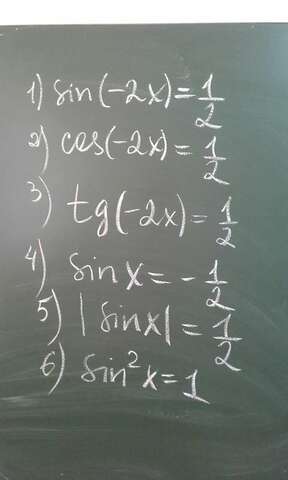 1) sin(-2x)=1/2
2) cos(-2x)=1/2
3) tg(-2x)=1/2
4) sin x=-1/2
5) |sinx|=1/2
6) sin²x=1